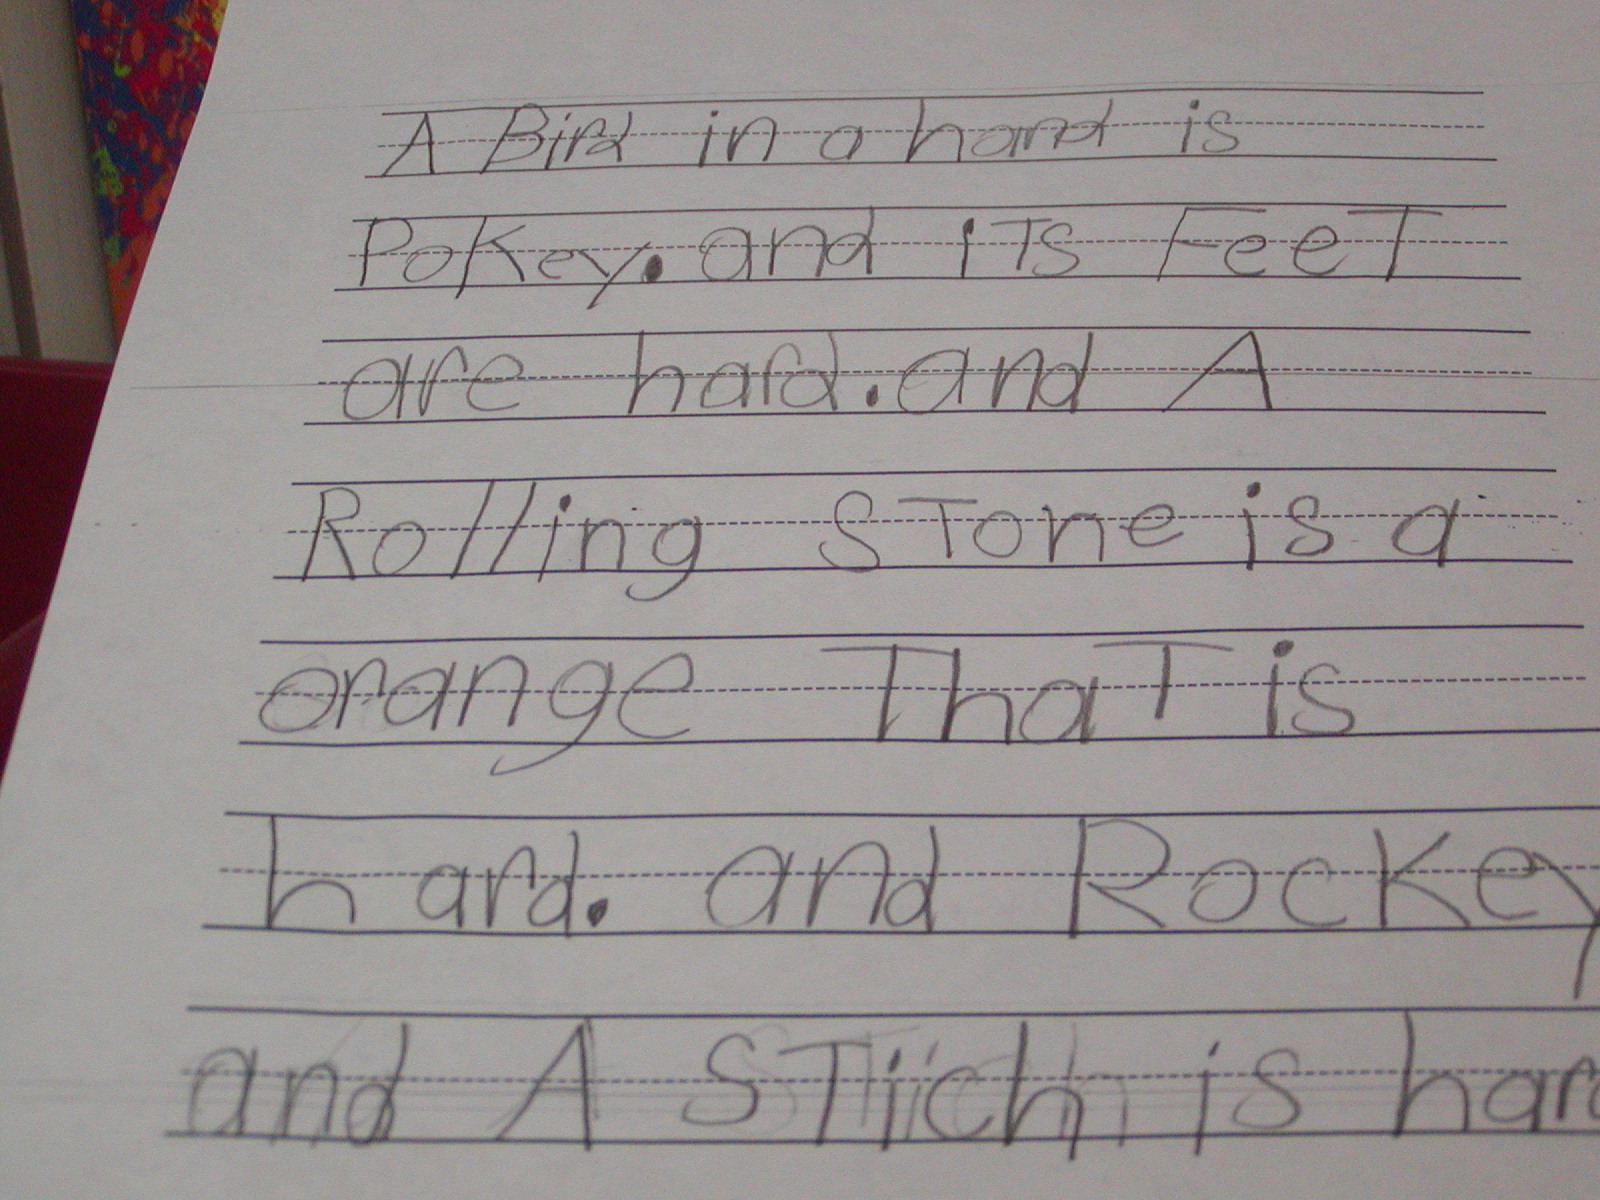 A Bird in a hand is
Pokey. and iTs FeeT
are hard. and A
Rolling STone is a
orange ThaT is
hard. and Rockey
and A STich is hard